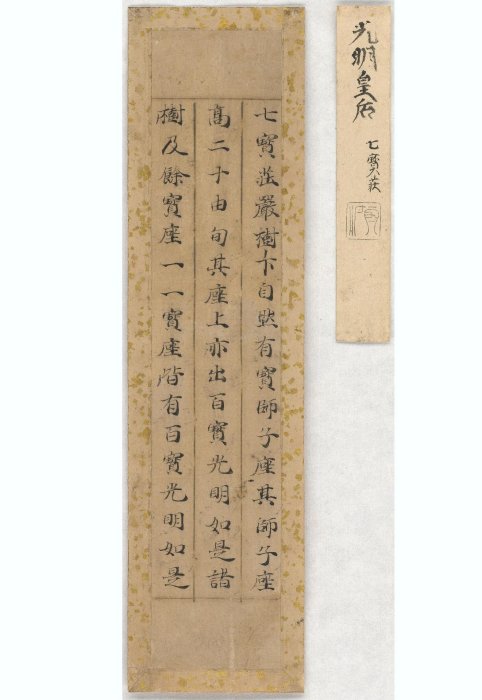 光明皇后
七寶莊
七寶莊嚴樹下自然有寶師子座其師子座
高二十由旬其座上亦出百寶光明如是諸
樹及餘寶座一一寶座皆有百寶光明如是